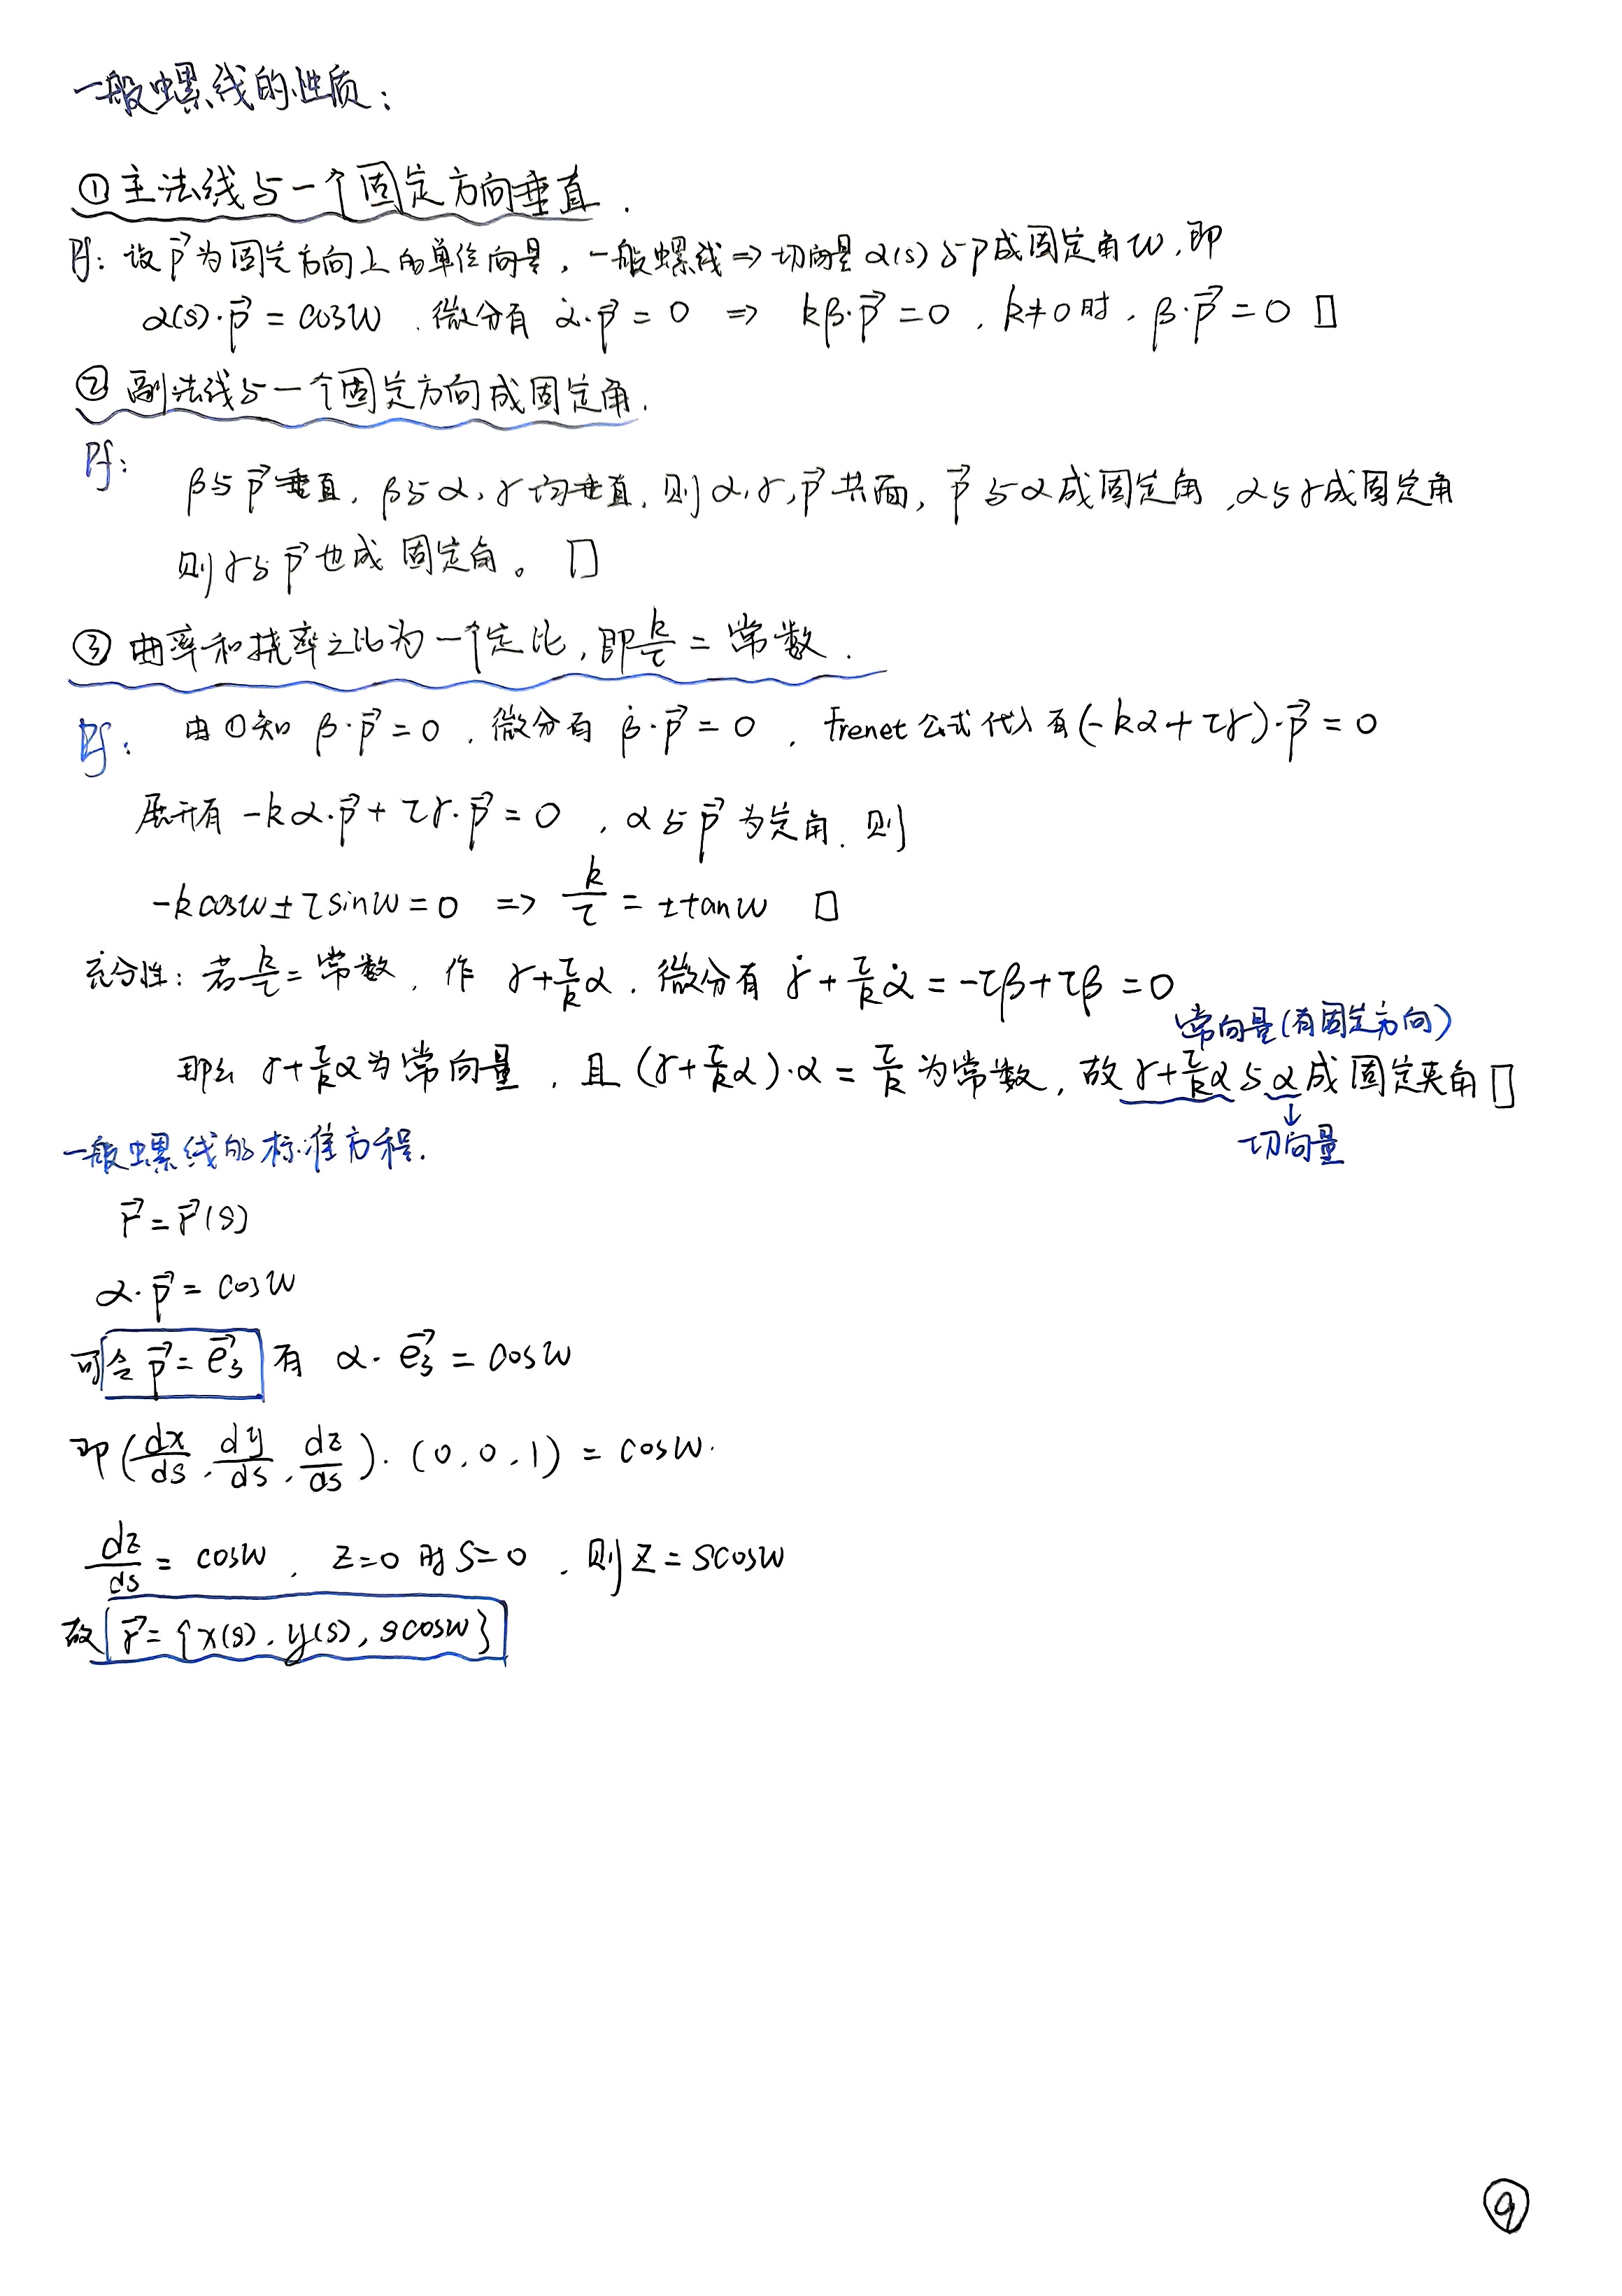 一般螺线的性质：
①主法线与一个固定方向垂直．
Pf：设p⃗为固定方向上的单位向量，一般螺线⇒切向量α(s)与p成固定角ω，即
α(s)·p⃗ = cosω．微分有 α̇·p⃗ = 0 ⇒ kβ·p⃗ = 0，k≠0时，β·p⃗ = 0 □
②副法线与一个固定方向成固定角．
Pf：
β与p⃗垂直，β与α，γ均垂直，则α，γ，p⃗共面，p⃗与α成固定角，α与γ成固定角
则γ与p⃗也成固定角。□
③曲率和挠率之比为一个定比，即k/τ = 常数．
Pf：由①知 β·p⃗ = 0，微分有 β̇·p⃗ = 0，Frenet公式代入有(-kα+τγ)·p⃗ = 0
展开有 -kα·p⃗ + τγ·p⃗ = 0，α与p⃗为定角．则
-kcosω±τsinω=0 ⇒ k/τ = ±tanω □
充分性：若k/τ = 常数，作 γ+τ/kα．微分有 γ̇ + τ/kα̇ = -τβ+τβ = 0
常向量(有固定方向)
那么 γ+τ/kα为常向量，且 (γ+τ/kα)·α = τ/k 为常数，故γ+τ/kα与α成固定夹角 □
↓
切向量
一般螺线的标准方程．
r⃗ = r⃗(s)
α·p⃗ = cosω
可令p⃗ = e⃗₃ 有 α·e⃗₃ = cosω
即(dx/ds, dy/ds, dz/ds)·(0,0,1) = cosω．
dz/ds = cosω，z=0时s=0，则z = scosω
故 r⃗ = {x(s), y(s), scosω}
⑨